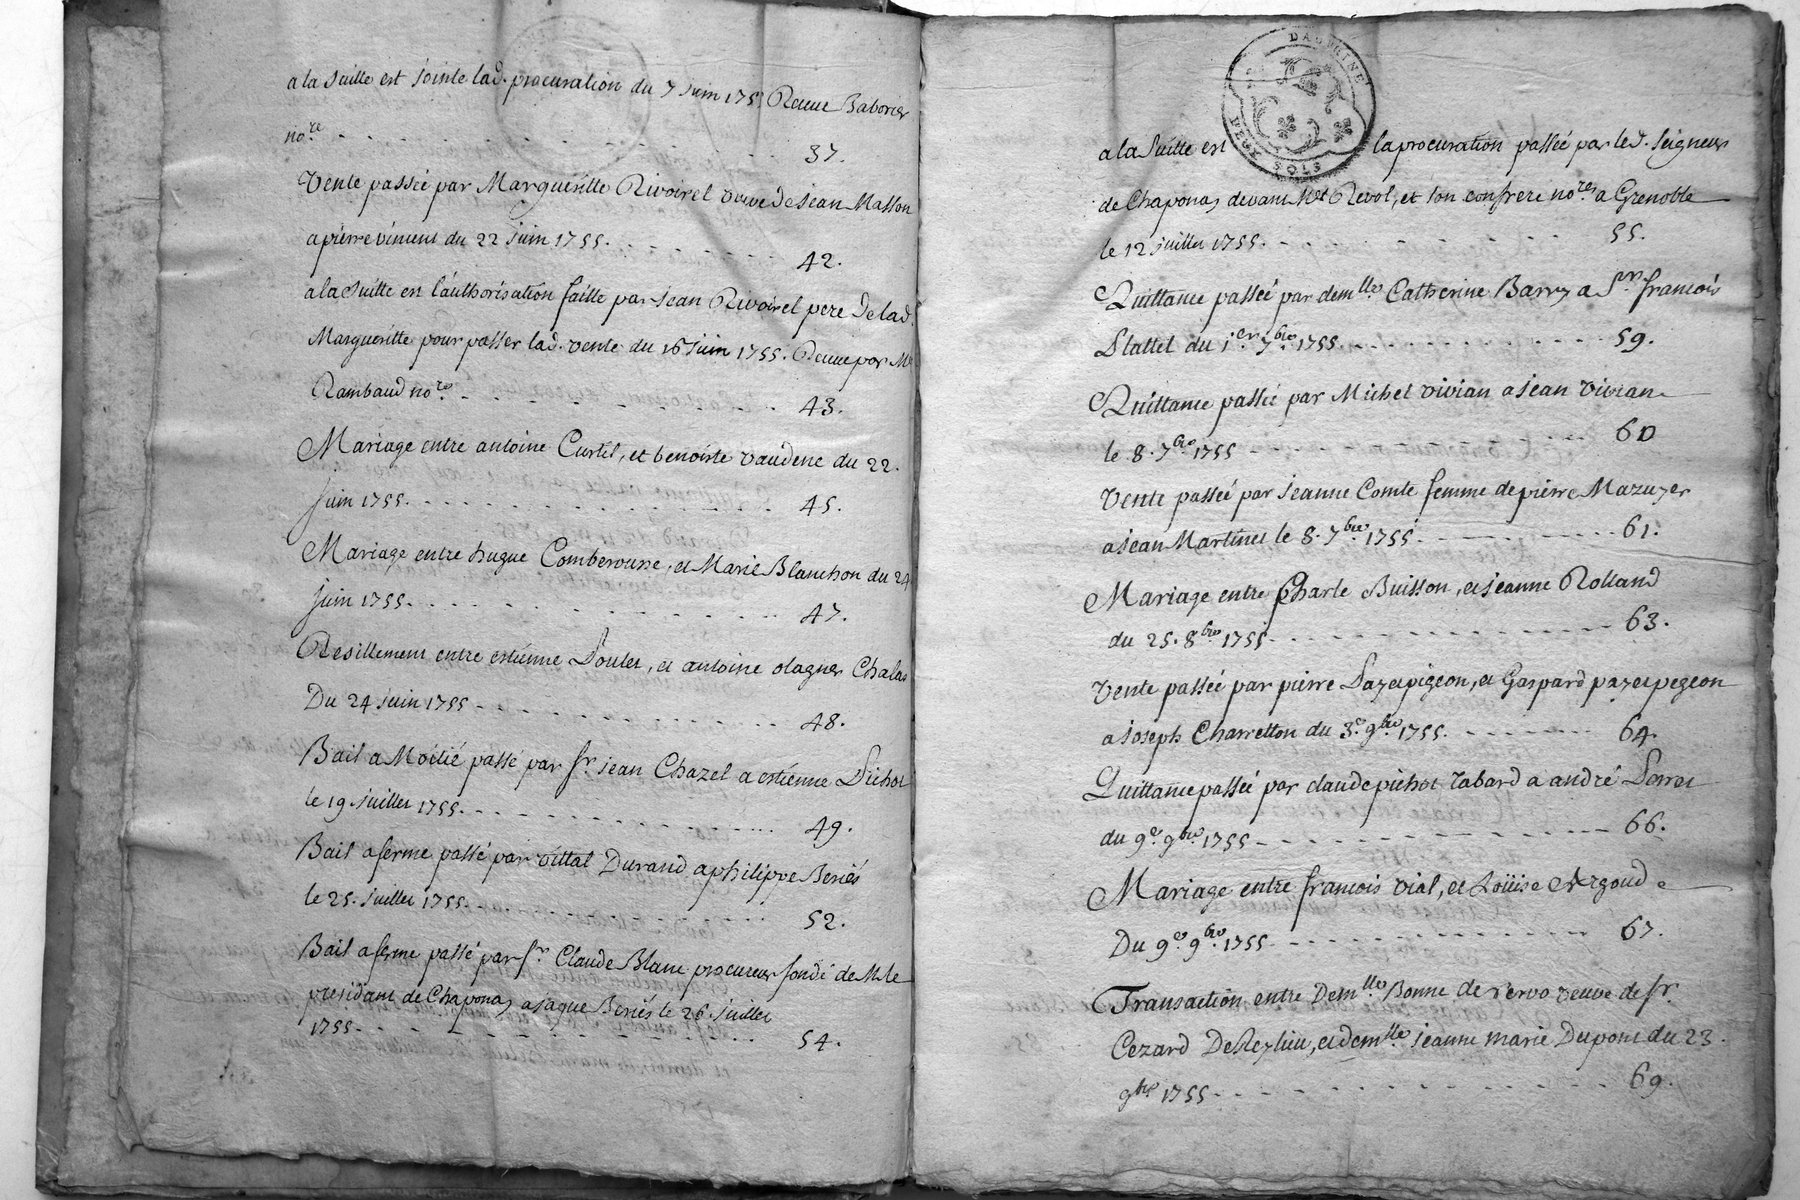 a la suitte est jointe lad. procuration du 7 juin 1755 Receue Baborier
no.re 37.
Vente passée par Margueritte Rivoirel veuve de jean Masson
a pierre vincent du 22 juin 1755. 42.
a la suitte est l'authorisation faitte par jean Rivoirel pere de lad.
Margueritte pour passer lad. vente du 16 juin 1755. Receue par Me
Rambaud no.re 43.
Mariage entre antoine Curtil, et benoiste vaudene du 22.
juin 1755. 45.
Mariage entre hugue Comberousse, et Marie Blanchon du 24
juin 1755. 47.
Resillement entre estienne , et antoine olagner Chalas
Du 24 juin 1755 48.
Bail a Moitié passé par sr jean Chazel a estienne Pichot
le 19. juillet 1755. 49.
Bail a ferme passé par vittal Durand a philippe Beriés
le 25. juillet 1755. 52.
Bail a ferme passé par sr. Claude Blanc procureur fondé de M. le
president de Chaponay a jaque Beriés le 26. juillet
1755. 54.
DAUPHINE
DEUX SOLS
a la suitte est la procuration passée par led. seigneur
de Chaponay devant Me Revol, et son confrere no.res a Grenoble
le 12 juillet 1755. 55.
Quittance passée par dem.lle Catherine Barry a Sr. francois
Plattel du 1.er 7.bre 1755 59.
Quittance passée par Michel vivian a jean vivian
le 8. 7.bre 1755 60
Vente passée par jeanne Comte femme de pierre Mazuyer
a jean Martinet le 8. 7.bre 1755. 61.
Mariage entre Charle Buisson, et jeanne Rolland
du 25. 8.bre 1755. 63.
Vente passée par pierre Pazetpigeon, et Gaspard pazetpegeon
a joseph Charretton du 3e. 9.bre 1755. 64.
Quittance passée par claude pichot tabard a andré
du 9e. 9.bre 1755 66.
Mariage entre francois vial, et Loüise Argoud
Du 9e. 9.bre 1755 67.
Transaction entre Dem.lle Bonne de veuve de sr.
Cezard , et dem.lle jeanne marie Dupont du 23.
9bre 1755. 69.